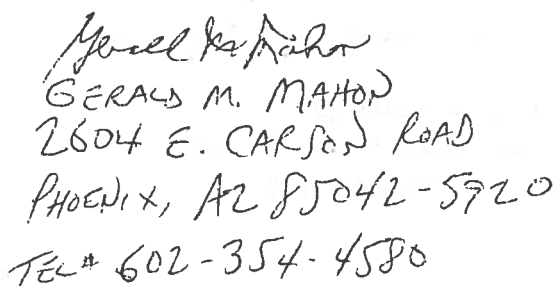 Gerald M. Mahon
GERALD M. MAHON
2604 E. CARSON ROAD
PHOENIX, AZ 85042-5920
TEL# 602-354-4580